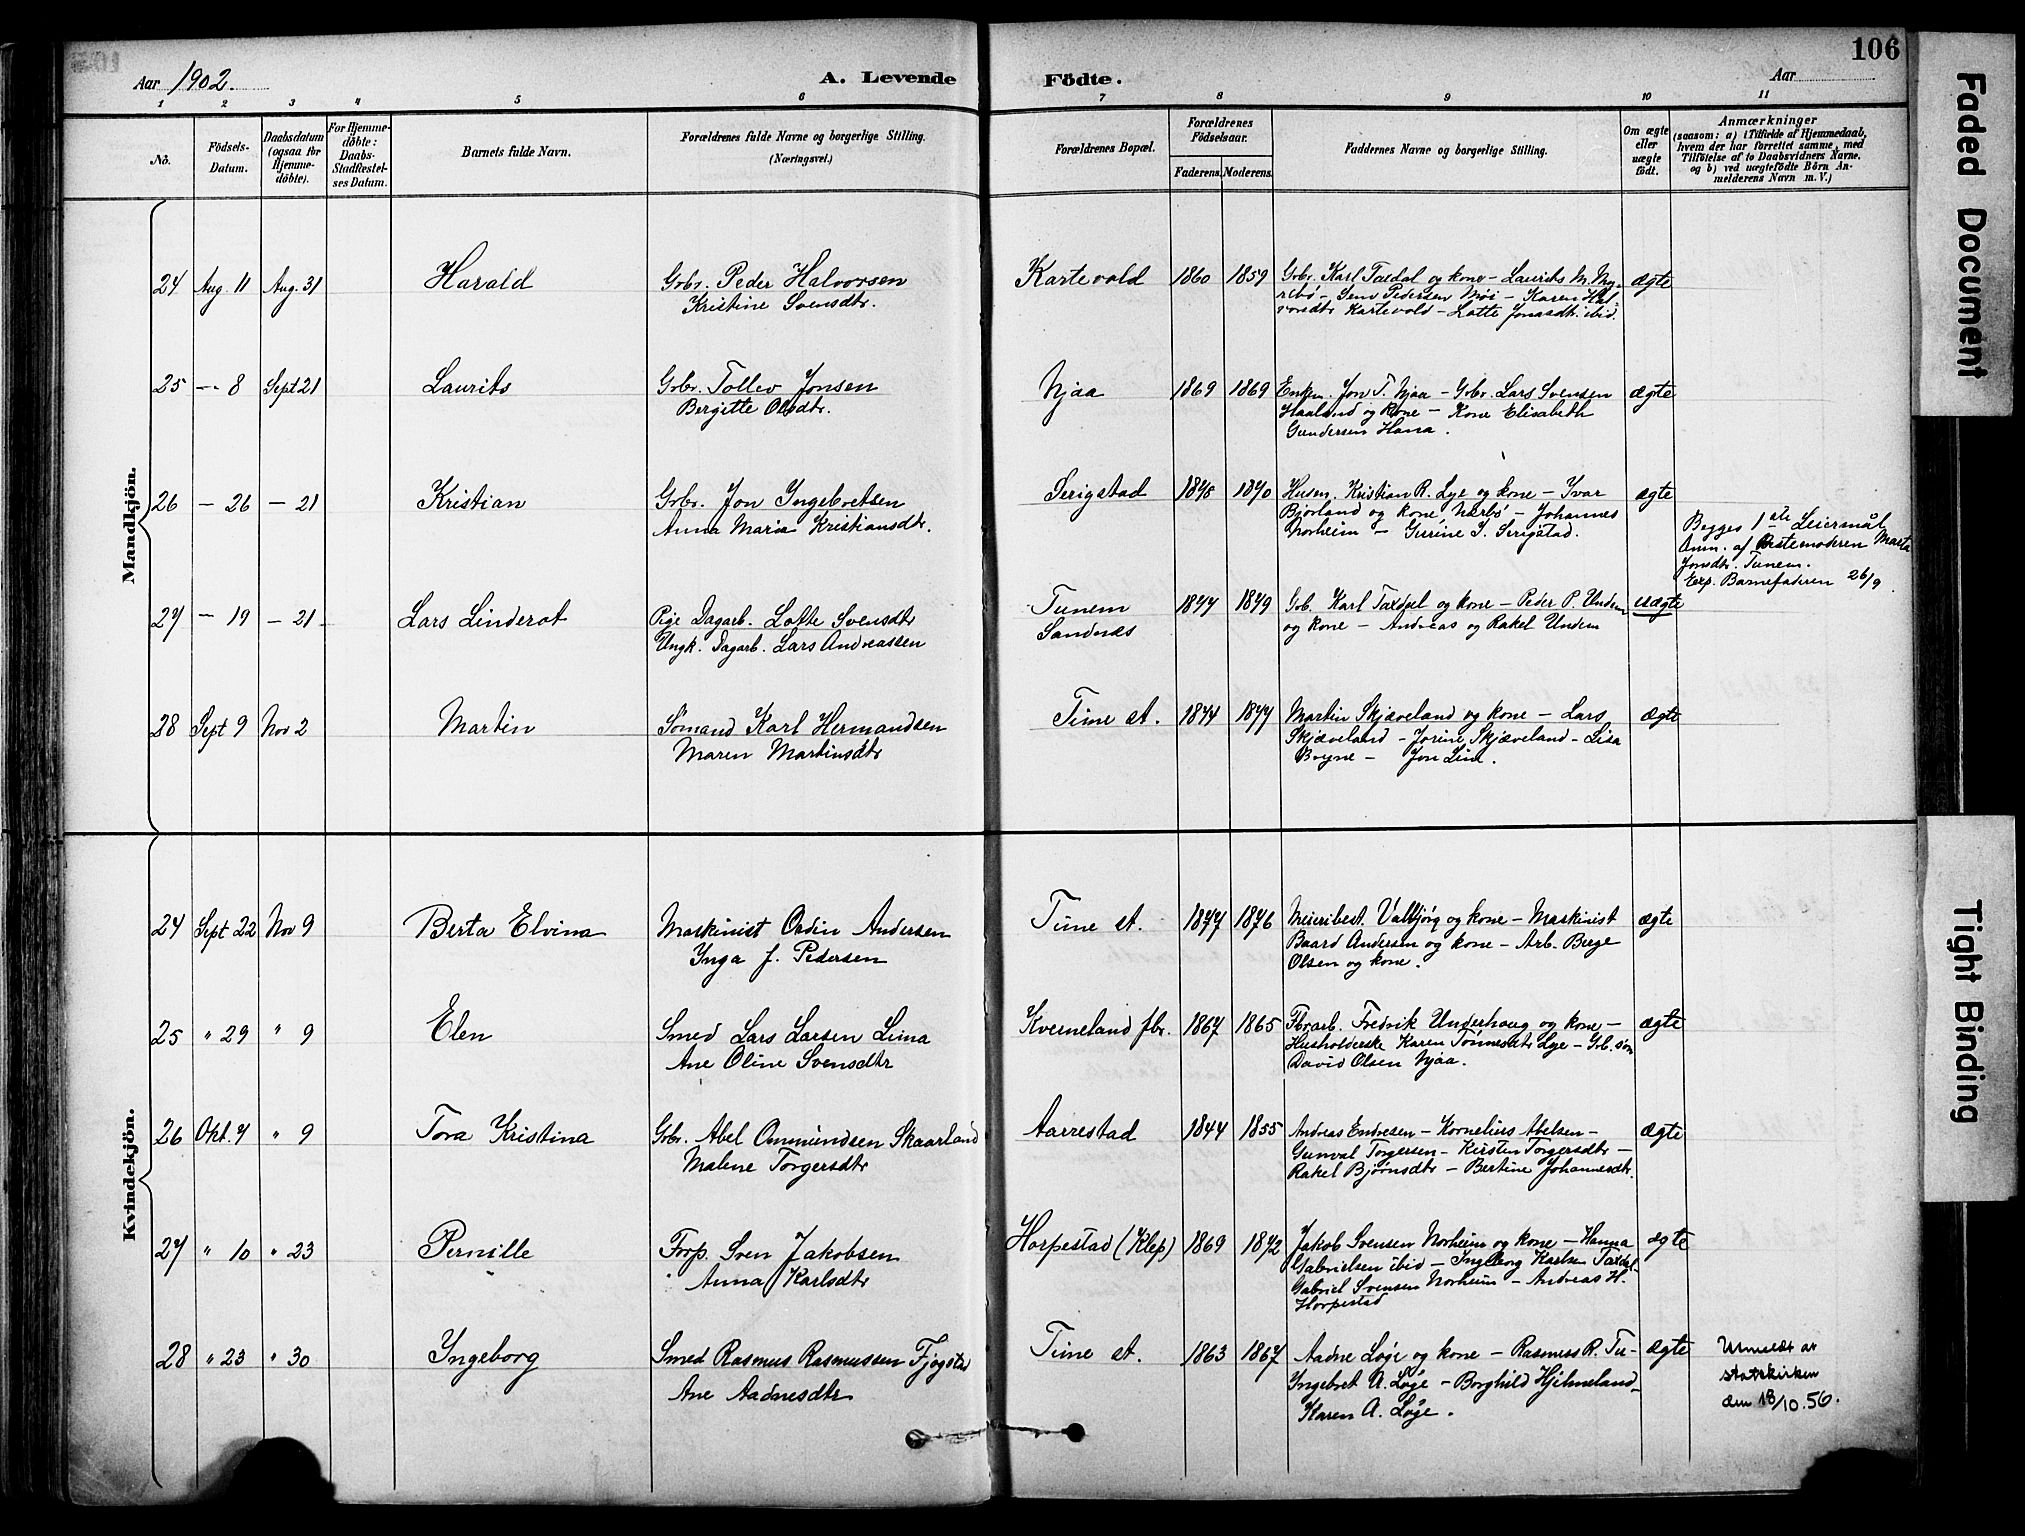 106
Aar 1902. A. Levende Födte. Aar
1 2 3 4 5 6 7 8 9 10 11
No.
Födsels-
Datum.
Daabsdatum
(ogsaa for
Hjemme-
döbte).
For Hjemme-
döbte:
Daabs-
Stadfæstel-
ses Datum.
Barnets fulde Navn.
Forældrenes fulde Navne og borgerlige Stilling.
(Næringsvei.)
Forældrenes Bopæl.
Forældrenes
Födselsaar.
Faderens. Moderens.
Faddernes Navne og borgerlige Stilling.
Om ægte
eller
uægte
födt.
Anmærkninger
(saasom: a) i Tilfælde af Hjemmedaab,
hvem der har forrettet samme, med
Tilföielse af to Daabsvidners Navne,
og b) ved uægtefödte Börn An-
melderens Navn m. V.)
Mandkjön.
24 Aug. 11 Aug. 31 Harald Gbr. Peder Halvorsen
Kristine Svensdtr.
Kartevold 1860 1859 Gbr. Karl Taxdal og kone – Laurits M. My-
rebø – Sem Pedersen Møi – Karen Hal-
vorsdtr Kartevold – Lotte Jonasdtr. ibid.
ægte
25 — 8 Sept 21 Laurits Gbr. Tollev Jonsen
Bergitte Olsdtr.
Njaa 1869 1869 Enkem. Jon T. Njaa – Gbr. Lars Svensen
Haaland og kone – Kone Elisabeth
Gundersen Hana.
ægte
26 — 26 — 21 Kristian Gbr. Jon Ingebretsen
Anna Maria Kristiansdtr.
Serigstad 1875 1870 Husm. Kristian R. Lye og kone – Ivar
Bjorland og kone Nærbø – Johannes
Norheim – Gurine I. Serigstad.
ægte
27 — 19 — 21 Lars Linderot Pige Dagarb. Lotte Svensdtr
Ungk. Dagarb. Lars Andreassen
Tunem
Sandnes
1877 1879 Gb. Karl Taxdal og kone – Peder P. Undem
og kone – Andreas og Rakel Undem
uægte
Begges 1ste Leiermål
Anm. af Bestemoderen Marta
Jonsdtr. Tunem.
Exp. Barnefaderen 26/9
28 Sept 9 Nov 2 Martin Sømand Karl Hermandsen
Maren Martinsdtr
Time st. 1874 1877 Martin Skjæveland og kone – Lars
Skjæveland – Jorine Skjæveland – Lisa
Bryne – Jon Lind.
ægte
Kvindekjön.
24 Sept 22 Nov 9 Berta Elvina Maskinist Odin Andersen
Inga f. Pedersen
Time st. 1877 1876 Meieribest. Valbjörg og kone – Maskinist
Baard Andersen og kone – Arb. Berge
Olsen og kone.
ægte
25 " 29 " 9 Elen Smed Lars Larsen Lima
Ane Oline Svensdtr
Kverneland fbr. 1867 1865 Fbrarb. Fredrik Underhaug og kone –
Husholderske Karen Tønnesdtr Lye – Gb. søn
David Olsen Njaa.
ægte
26 Okt. 7 " 9 Tora Kristina Gbr. Abel Ommundsen Skaarland
Malene Torgersdtr
Aarrestad 1844 1855 Andreas Endresen – Kornelius Abelsen –
Gunval Torgersen – Kirsten Torgersdtr –
Rakel Bjørnsdtr – Bertine Johannesdtr.
ægte
27 " 10 " 23 Pernille Forp. Sven Jakobsen
Anna Karlsdtr
Horpestad (Klep) 1869 1872 Jakob Svensen Norheim og kone – Hanna
Gabrielsen ibid – Ingeborg Karlsen Taxdal –
Gabriel Svensen Norheim – Andreas H.
Horpestad
ægte
28 " 23 " 30 Ingeborg Smed Rasmus Rasmussen Fjogstad
Ane Aadnesdtr
Time st. 1863 1867 Aadne Løge og kone – Rasmus R. Tu –
Ingebret A. Løge – Borghild Hjelmeland –
Karen A. Løge.
ægte
Utmeldt av
statskirken
den 18/10.56.
Faded Document
Tight Binding